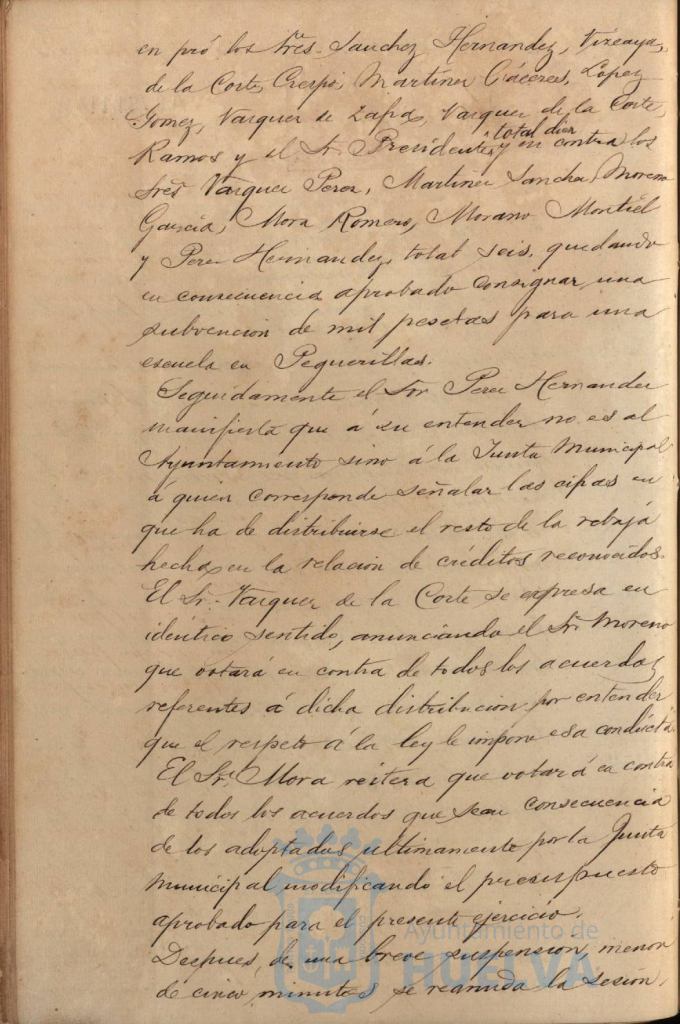 en pró los Sres. Sanchez Hernandez, Vizcaya,
de la Corte, Crespo, Martinez Cáceres, López
Gomez, Vazquez de Zafra, Vazquez de la Corte,
Ramos y el Sr. Presidente, total diez y en contra los
Sres Vazquez Perez, Martinez Sanchez, Moreno
García, Mora Romero, Morano Montiel
y Perez Hernandez, total seis, quedando
en consecuencia aprobado consignar una
subvencion de mil pesetas para una
escuela en Peguerillas.
Seguidamente el Sor Perez Hernandez
manifiesta que á su entender no es al
Ayuntamiento sino á la Junta Municipal
á quien corresponde señalar las cifras en
que ha de distribuirse el resto de la rebaja
hecha en la relacion de créditos reconocidos.
El Sr. Vazquez de la Corte se expresa en
identico sentido, anunciando el Sr. Moreno
que votará en contra de todos los acuerdos
referentes á dicha distribucion por entender
que el respeto á la ley le impone esa conducta.
El Sr. Mora reitera que votará en contra
de todos los acuerdos que sean consecuencia
de los adoptados ultimamente por la Junta
Municipal modificando el presupuesto
aprobado para el presente ejercicio.
Despues de una breve suspension, menor
de cinco minutos se reanuda la sesión,
Ayuntamiento de
HUELVA